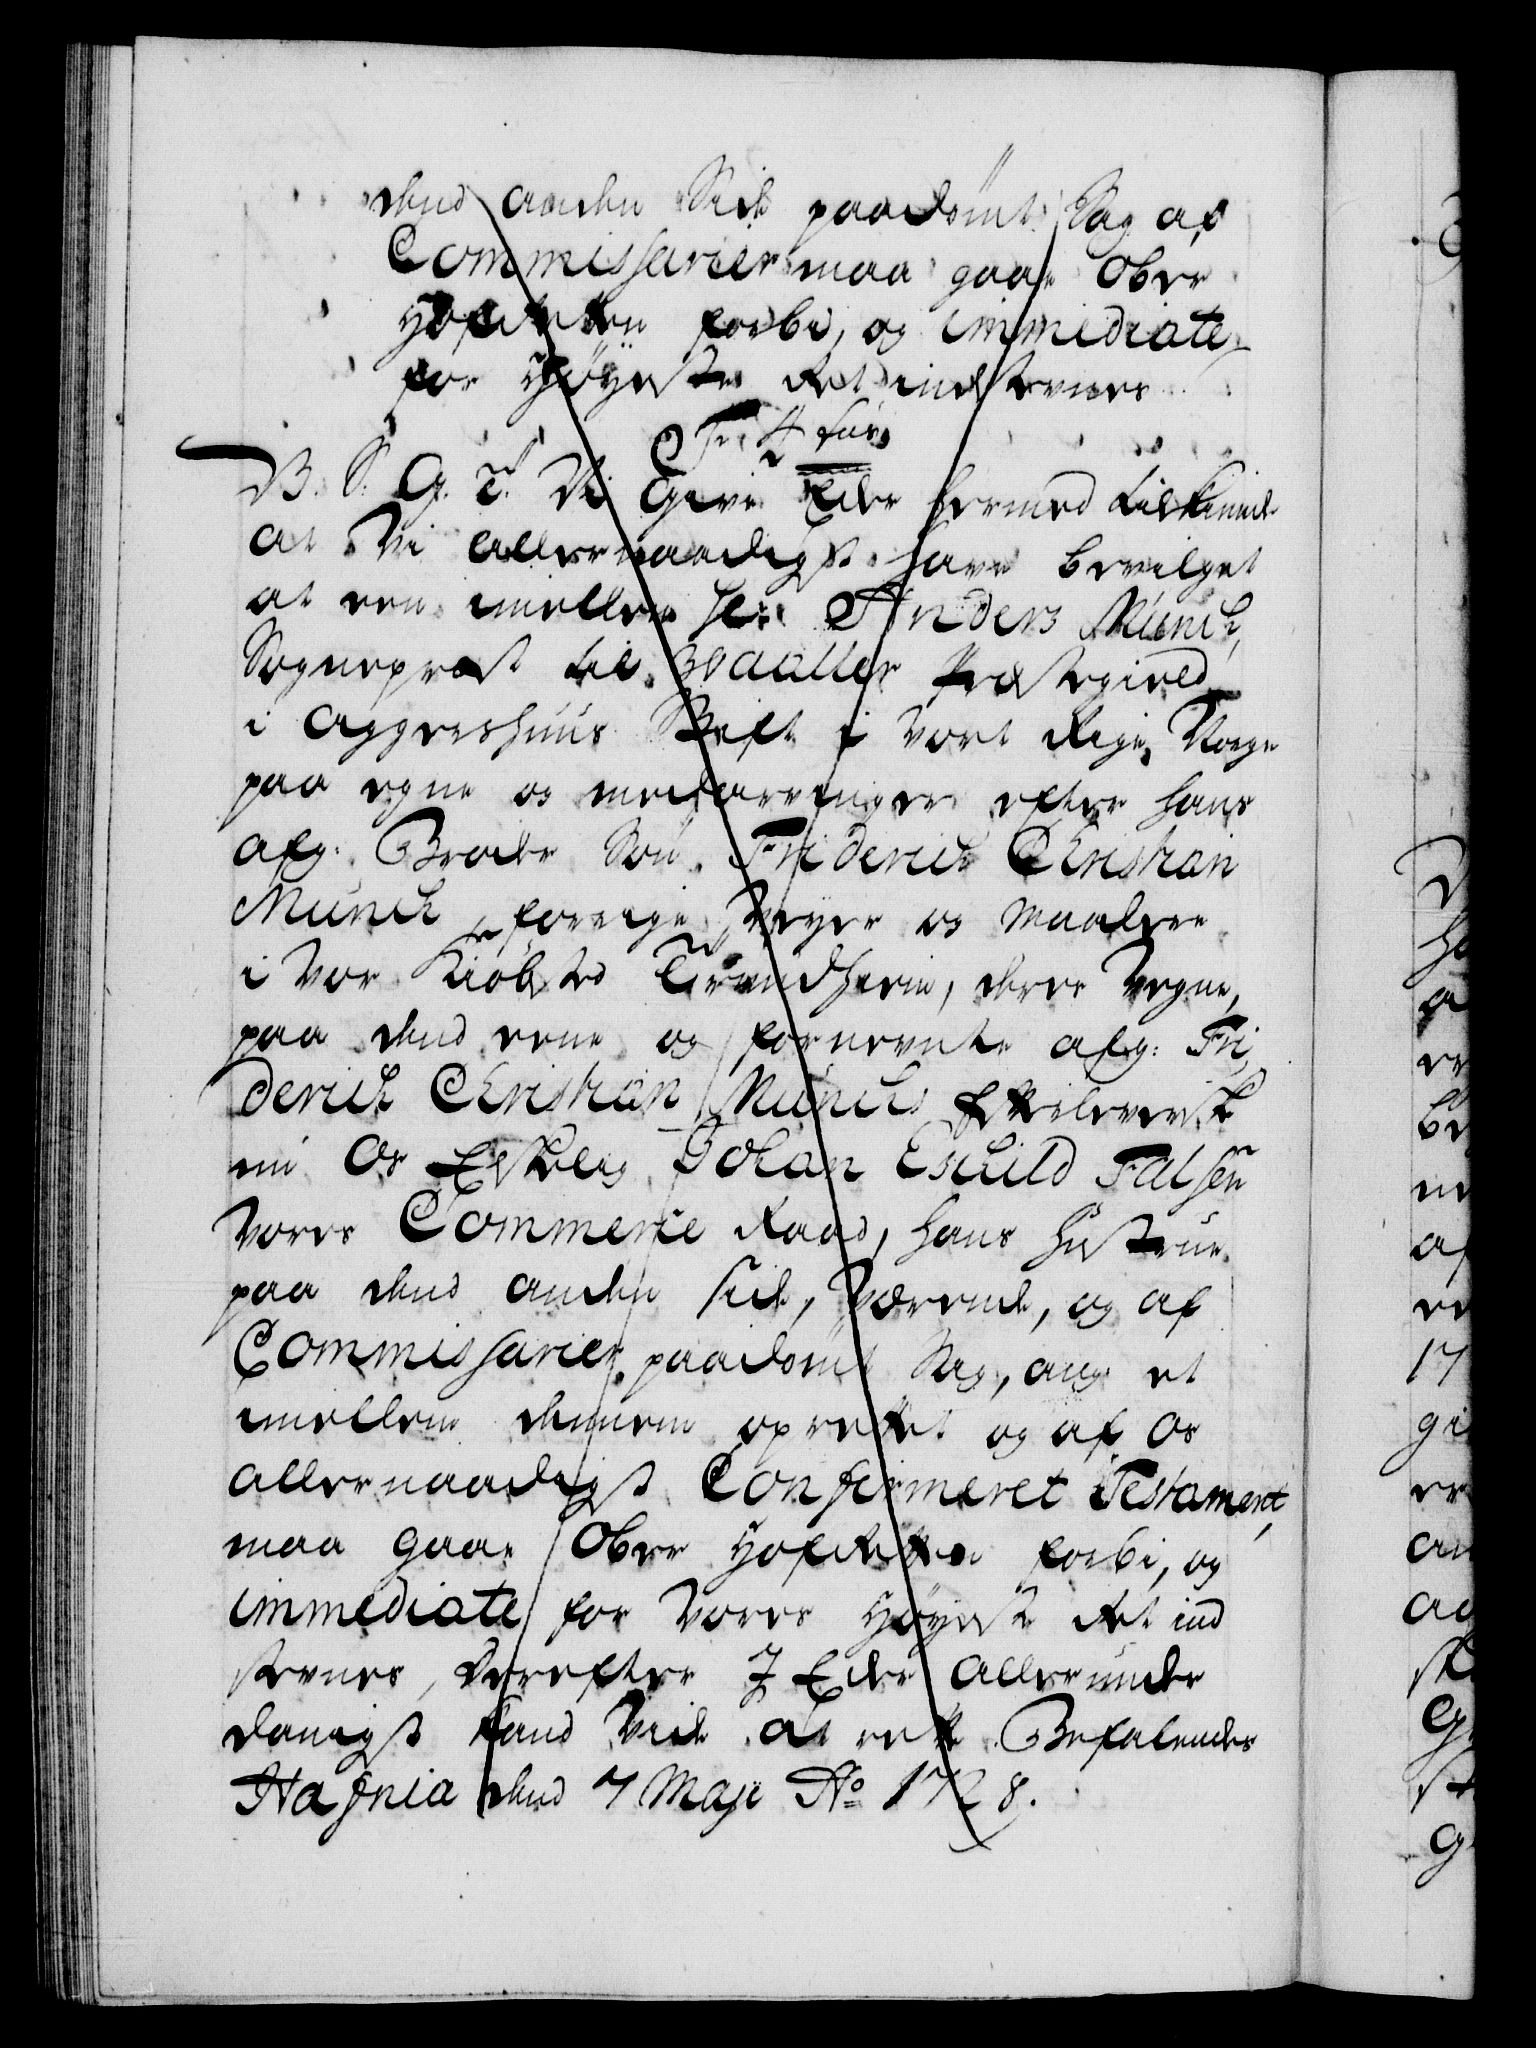 dend anden Side paadømt Sag af
Commissarier maa gaae Ober
Hofretten forbi, og immediate
for Høyeste Ret indstevnes
B. S. G. T. Vi give Eder hermed tilkiende
at Vi allernaadigst have bevilget
at een imellem Hr: Anders Munch,
Sogneprest til Waaller Præstegield
i Aggershuus Stift i Vort Rige Norge
paa egne og medarvinger efter hans
afg: Broder Søn Friderich Christian
Munch, forrige Veyer og Maaler
i Vor Kiøbsted Trundhiem, deres Vegne,
paa dend eene og fornevnte afg: Fri
derich Christian Munchs Efterleverske
nu Os Elskelig Johan Eschild Falsen
Vores Commerce Raad, hans Hustrue
paa dend anden side, Værende, og af
Commissarier paadømt Sag, ang: et
imellem dennem oprettet og af Os
allernaadigst Confirmeret Testament,
maa gaae Ober Hofretten forbi, og
immediate for Vores Høyeste Ret ind
stevnes, Derefter I Eder allerunder
danigst kand Vide at rette. Befalendes
Hafnia dend 7 Maji Ao 1728.